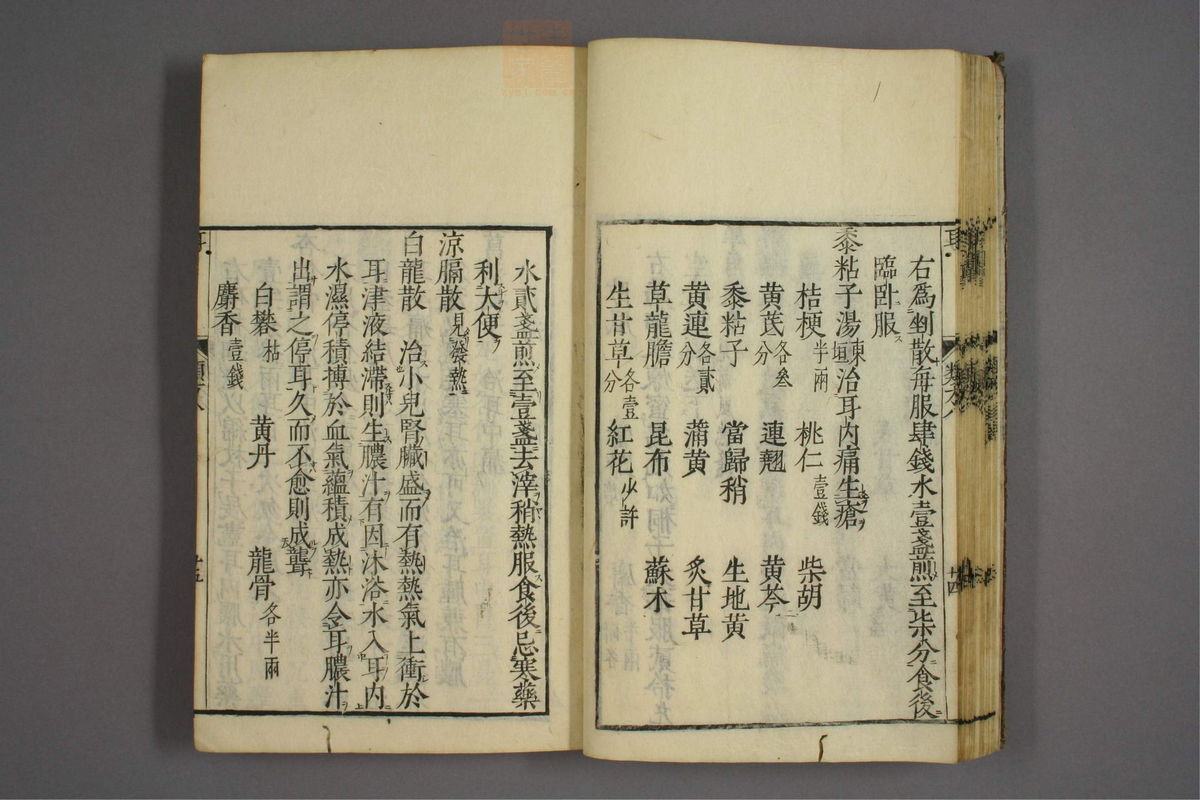 右為剉散每服肆錢水壹盞煎至柒分食後
臨卧服
黍粘子湯東垣治耳内痛生瘡
桔梗半兩 桃仁壹錢 柴胡
黄茋各叁分 連翹 黄芩
黍粘子 當歸稍 生地黄
黄連各貳分 蒲黄 炙甘草
草龍膽 昆布 蘇木
生甘草各壹分 紅花少許
水貳盞煎至壹盞去滓稍熱服食後忌寒藥
利大便
涼膈散見發熱
白龍散 治小兒腎臟盛而有熱熱氣上衝於
耳津液結滯則生膿汁有因沐浴水入耳内
水濕停積搏於血氣蘊積成熱亦令耳膿汁
出謂之停耳久而不愈則成聾
白礬枯 黄丹 龍骨各半兩
麝香壹錢
耳
類八
廿四